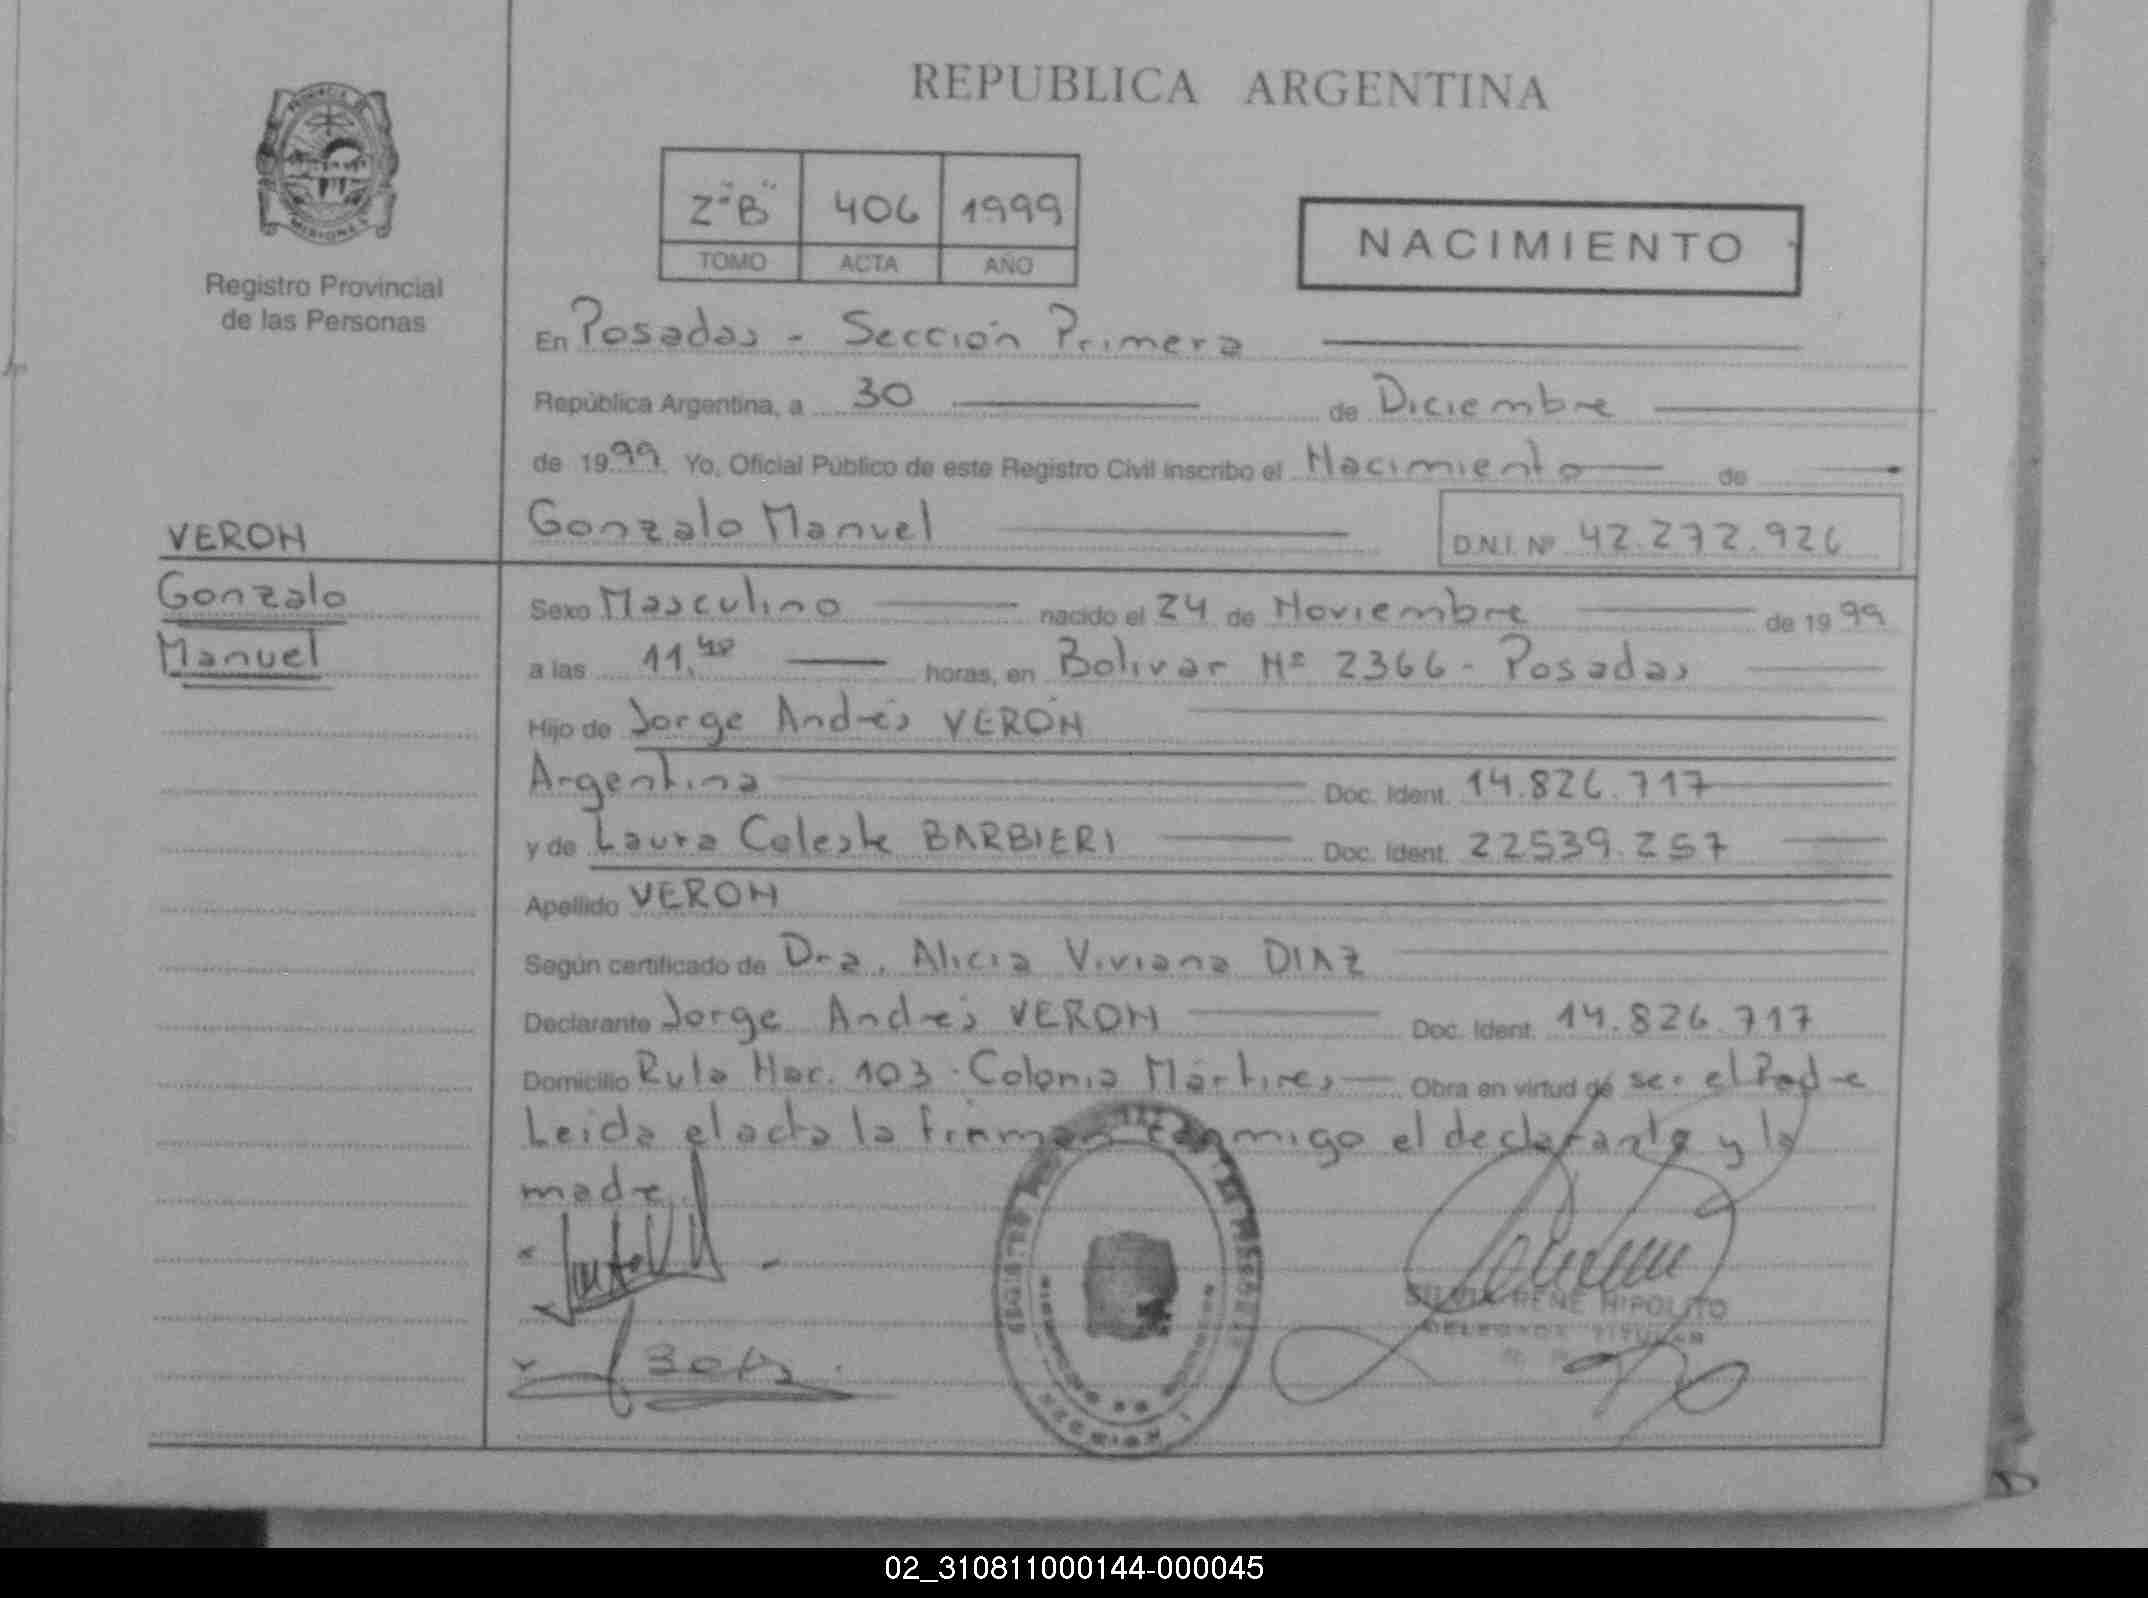 REPUBLICA ARGENTINA
PROVINCIA DE
MISIONES
Registro Provincial
de las Personas
2-"B" 406 1999
TOMO ACTA AÑO
NACIMIENTO
En Posadas - Sección Primera
República Argentina, a 30 de Diciembre
de 1999. Yo, Oficial Público de este Registro Civil inscribo el Nacimiento de
Gonzalo Manuel
D.N.I. Nº 42.272.926
VERON
Gonzalo
Manuel
Sexo Masculino nacido el 24 de Noviembre de 1999
a las 11.40 horas, en Bolivar Nº 2366 - Posadas
Hijo de Jorge Andrés VERÓN
Argentina Doc. Ident. 14.826.717
y de Laura Celeste BARBIERI Doc. Ident. 22539.257
Apellido VERON
Según certificado de Dra. Alicia Viviana DIAZ
Declarante Jorge Andrés VERON Doc. Ident. 14.826.717
Domicilio Ruta Nac. 103 - Colonia Mártires Obra en virtud de ser el Padre
Leida el acta la firman conmigo el declarante y la
madre.
SILVIA RENE HIPOLITO
DELEGADA TITULAR
02_310811000144-000045